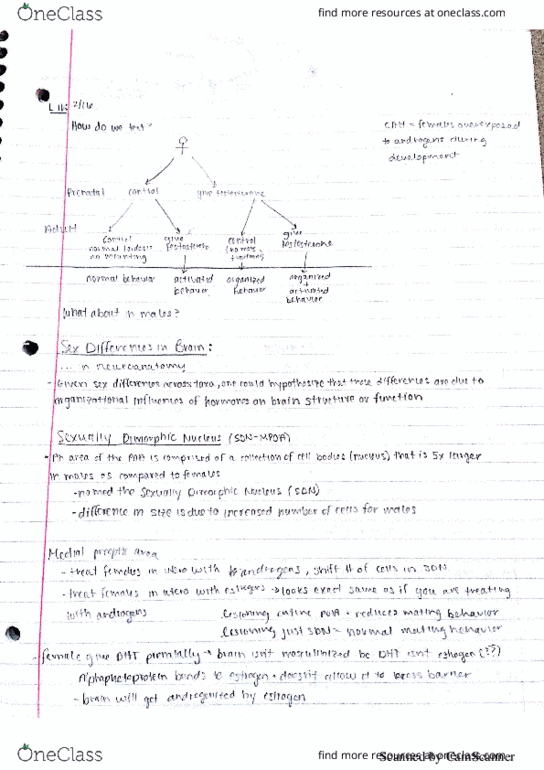 OneClass
find more resources at oneclass.com
L11: 2/16
How do we test?
CAH = females overexposed
to androgens during
development
♀
Prenatal control give testosterone
Adult
control give testosterone control give testosterone
normal lordosis
no mounting
normal behavior activated behavior organized behavior organized + activated behavior
What about in males?
Sex Differences in Brain:
... in neuroanatomy
- Given sex differences across taxa, one could hypothesize that these differences are due to
organizational influences of hormones on brain structure or function
Sexually Dimorphic Nucleus (SDN-MPOA)
- An area of the POA is comprised of a collection of cell bodies (nucleus) that is 5x larger
in males as compared to females
- named the Sexually Dimorphic Nucleus (SDN)
- difference in size is due to increased number of cells for males
Medial preoptic area
- treat females in utero with androgens, shift # of cells in SDN
- treat females in utero with estrogens → looks exact same as if you are treating
with androgens
lesioning entire POA = reduces mating behavior
lesioning just SDN = normal mating behavior
- female give DHT prenatally → brain isn't masculinized bc DHT isn't estrogen (??)
Alphafetoprotein binds to estrogen + doesn't allow it to cross barrier
- brain will get androgenized by estrogen
OneClass
find more resources at oneclass.com
Scanned by CamScanner